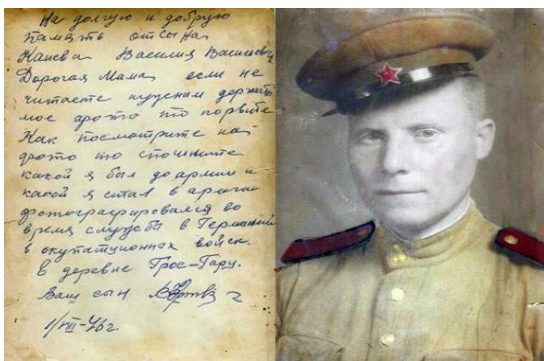 На долгую и добрую
память от сына
Канева Василия Василиевич
Дорогая Мама если не
читаете нужнам держать
мое фото то порвите
Как посмотрите на
фото то спомните
какой я был до армии и
какой я стал в армии
фотографировался во
время службы в Германий
в окупационнах войск.
в деревне Грос-Гарц.
Ваш сын
1/VIII-46 г.